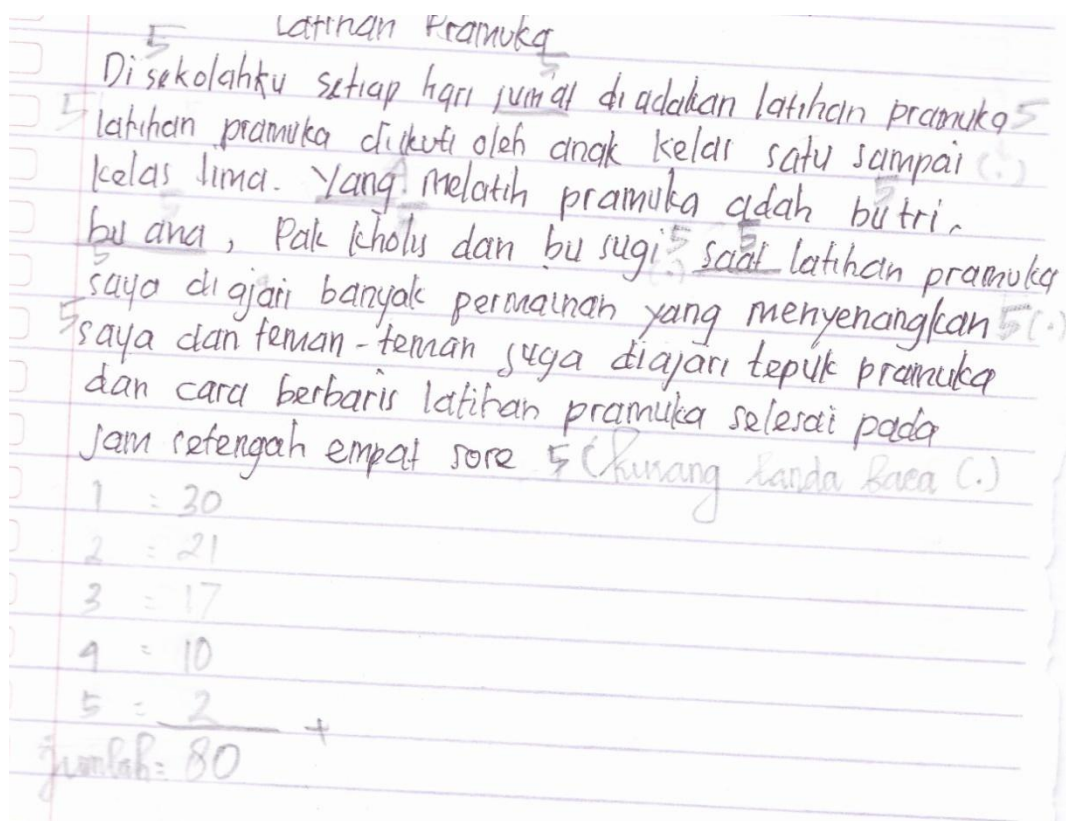 Latihan Pramuka
5 5
Di sekolahku setiap hari jumat di adakan latihan pramuka 5
5 latihan pramuka diikuti oleh anak kelas satu sampai (.)
kelas lima. Yang melatih pramuka adah bu tri,
bu ana, Pak kholus dan bu sugi 5 saat latihan pramuka
saya di ajari banyak permainan yang menyenangkan 5 (.)
5 saya dan teman-teman juga diajari tepuk pramuka
dan cara berbaris latihan pramuka selesai pada
jam setengah empat sore 5 (kurang tanda baca (.)
1 = 30
2 = 21
3 = 17
4 = 10
5 = 2 +
jumlah = 80